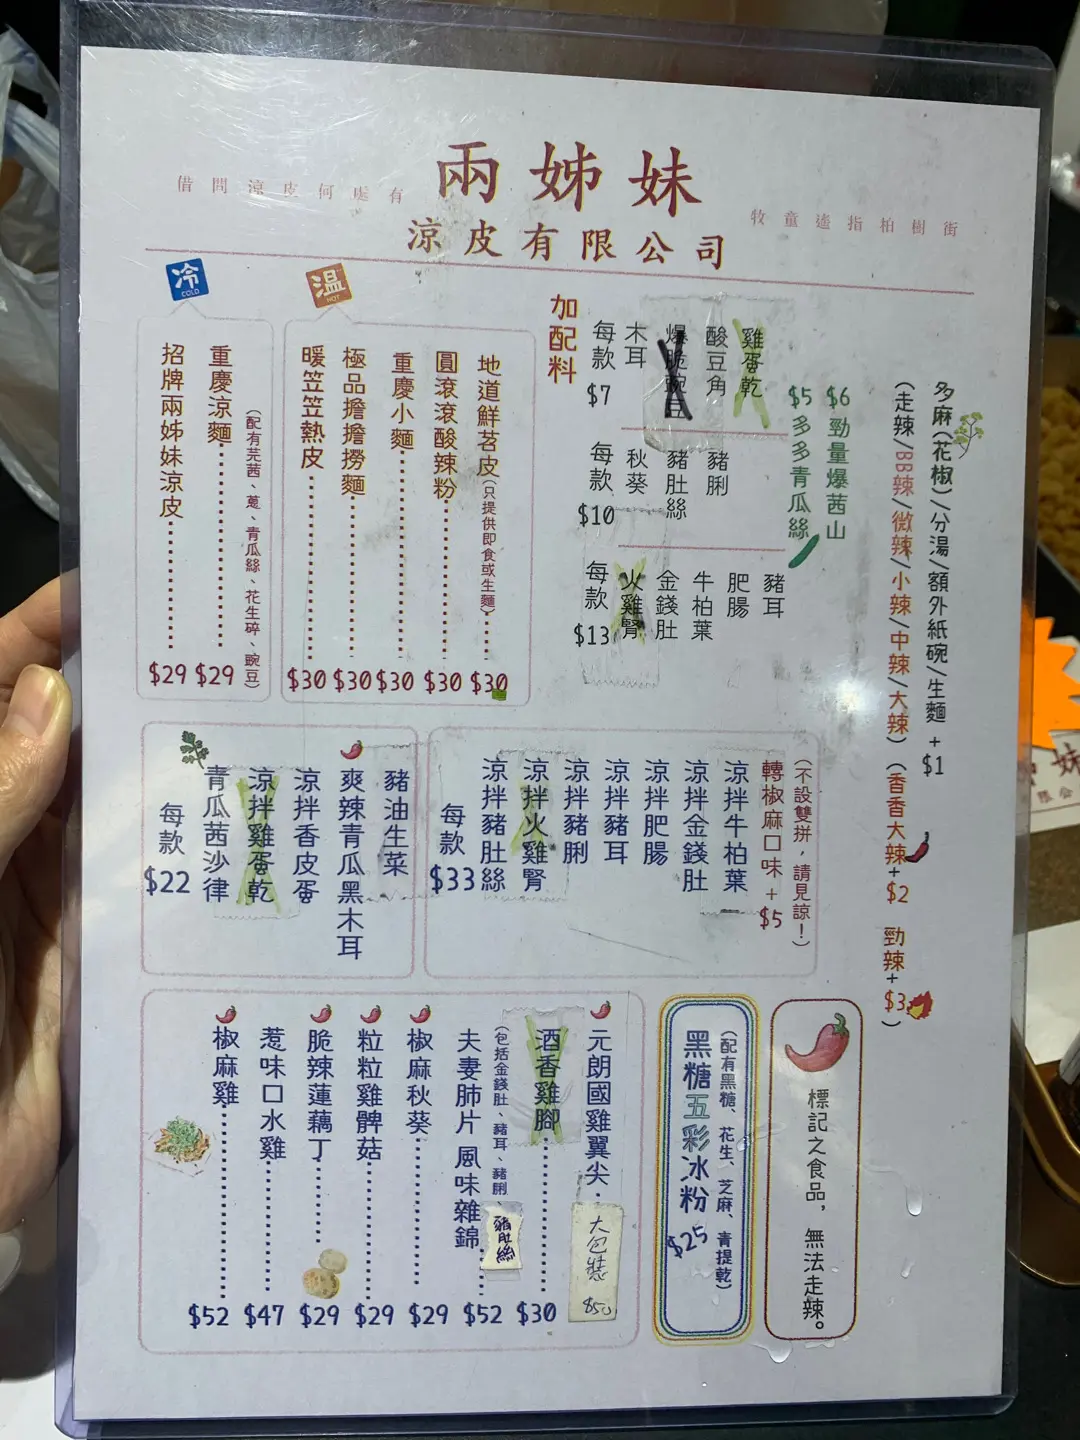 兩姊妹
借問涼皮何處有
牧童遙指柏樹街
涼皮有限公司
冷
COLD
招牌兩姊妹涼皮 $29
重慶涼麵 $29
(配有芫茜、蔥、青瓜絲、花生碎、豌豆)
溫
HOT
暖笠笠熱皮 $30
極品擔擔撈麵 $30
重慶小麵 $30
圓滾滾酸辣粉 $30
地道鮮苕皮(只提供即食或生麵) $30
加配料
每款 $7
木耳
爆脆豌豆
酸豆角
雞蛋乾
每款 $10
秋葵
豬肚絲
豬脷
每款 $13
火雞腎
金錢肚
牛柏葉
肥腸
豬耳
$5 多多青瓜絲
$6 勁量爆茜山
多麻(花椒)/分湯/額外紙碗/生麵 +$1
(走辣/BB辣/微辣/小辣/中辣/大辣)(香香大辣+$2 勁辣+$3)
每款 $22
青瓜茜沙律
涼拌雞蛋乾
涼拌香皮蛋
爽辣青瓜黑木耳
豬油生菜
每款 $33
涼拌豬肚絲
涼拌火雞腎
涼拌豬脷
涼拌豬耳
涼拌肥腸
涼拌金錢肚
涼拌牛柏葉
轉椒麻口味+$5
(不設雙拼，請見諒！)
椒麻雞 $52
惹味口水雞 $47
脆辣蓮藕丁 $29
粒粒雞髀菇 $29
椒麻秋葵 $29
夫妻肺片 風味雜錦 $52
(包括金錢肚、豬耳、豬脷、
豬肚絲
酒香雞腳 $30
元朗國雞翼尖
大包裝 $50
黑糖五彩冰粉 $25
(配有黑糖、花生、芝麻、青提乾)
標記之食品，無法走辣。